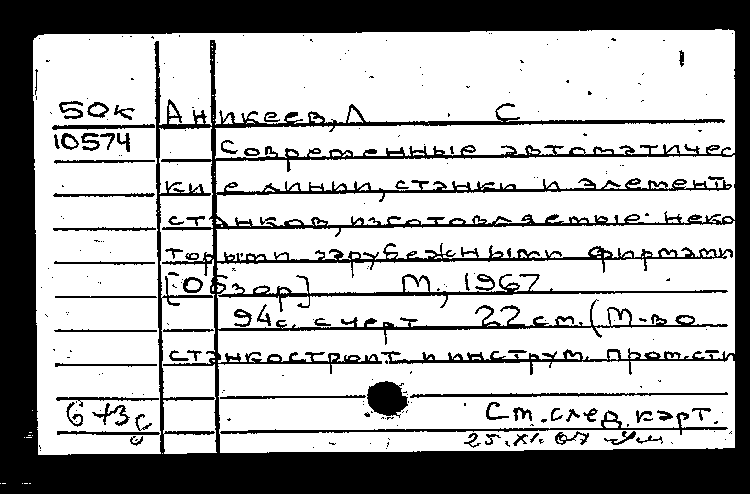 1
50к Аникеев, Л С
10574 Современные автоматичес
кие линии, станки и элементы
станков, изготовляемые неко
торыми зарубежными фирмами
[Обзор] М., 1967.
94с. с черт. 22 см. (М-во
станкостроит. и инструм. пром.сти
См. след. карт.
25.XI.67